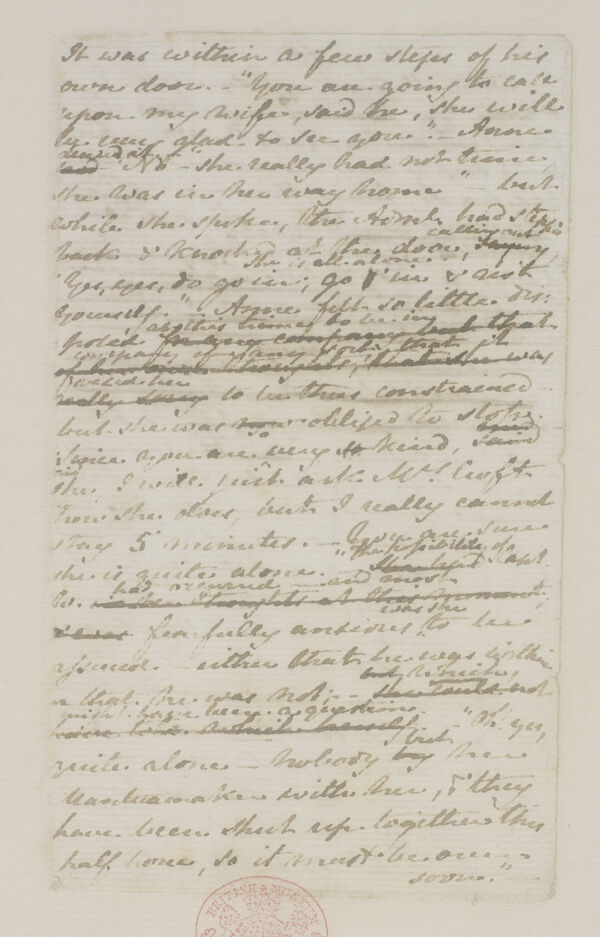 It was within a few steps of his
own door. - "You are going to call
upon my wife, said he, she will
be very glad to see you." - Anne
denied it.
said "No - she really had not time,
she was in her way home" - but
while she spoke, the Adml. had stepd
calling out
back & knocked at the door, saying,
She is all alone
"Yes, yes, do go in; go in & rest
yourself." Anne felt so little dis:
at this time to be in
posed for any company but that
company of any sort, that it
of her own Thoughts, that she was
vexed her
really sorry to be thus constrained -
but she was obliged to stop.
so
Since you are very kind, said
she, I will just ask Mrs. Croft
how she does, but I really cannot
stay 5 minutes. - You are sure
"The possibility of
she is quite alone. She had Capt.
had occurred - and most
W. in her Thoughts at this moment,
was she
fearfully anxious to be
assured - either that he was within
but, which,
or that he was not; - she could not
might have been a question.
herself. - "Oh! yes,
but
quite alone - nobody by her
Mantuamaker with her, & they
have been shut up together this
half hour, so it must be over
soon."
BRITISH MUSEUM